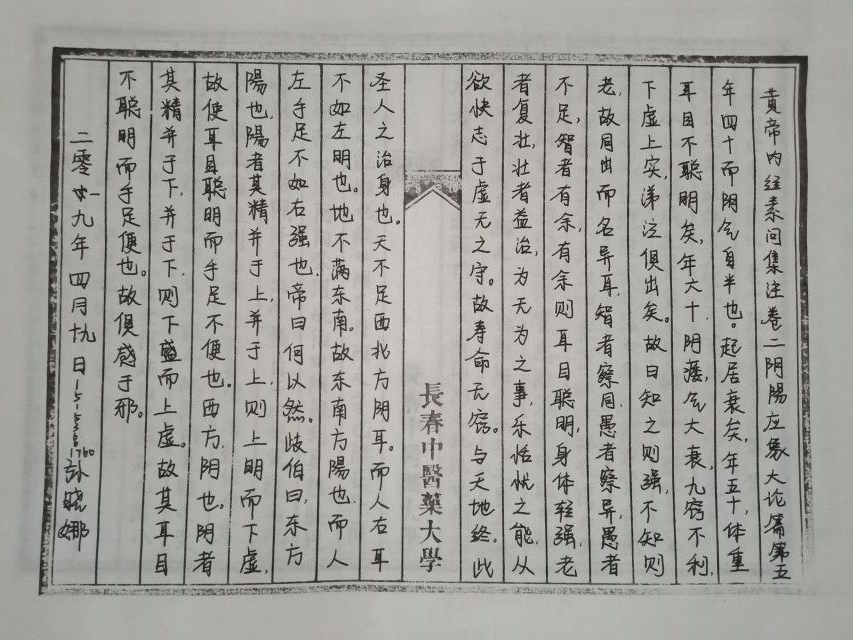 黄帝内经素问集注卷二阴陽应象大论篇第五
年四十而阴气自半也。起居衰矣,年五十,体重
耳目不聪明矣,年六十,阴痿,气大衰,九窍不利,
下虚上实,涕泣俱出矣。故曰知之则强,不知则
老,故同出而名异耳,智者察同,愚者察异,愚者
不足,智者有余,有余则耳目聪明,身体轻强,老
者复壮,壮者益治,为无为之事,乐恬忱之能,从
欲快志于虚无之守。故寿命无窍。与天地终。此
長春中醫藥大學
圣人之治身也。天不足西北方阴耳。而人右耳
不如左明也。地不满东南。故东南方陽也,而人
左手足不如右强也,帝曰何以然。歧伯曰,东方
陽也,陽者其精并于上,并于上,则上明而下虚,
故使耳目聪明而手足不便也。西方,阴也。阴者
其精并于下,并于下,则下盛而上虚。故其耳目
不聪明而手足便也。故俱感于邪。
二零一九年四月十九日